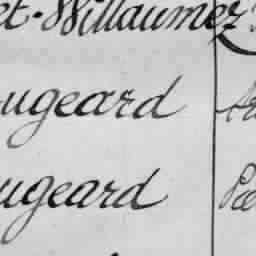 et-Willaumez
ugeard
ugeard